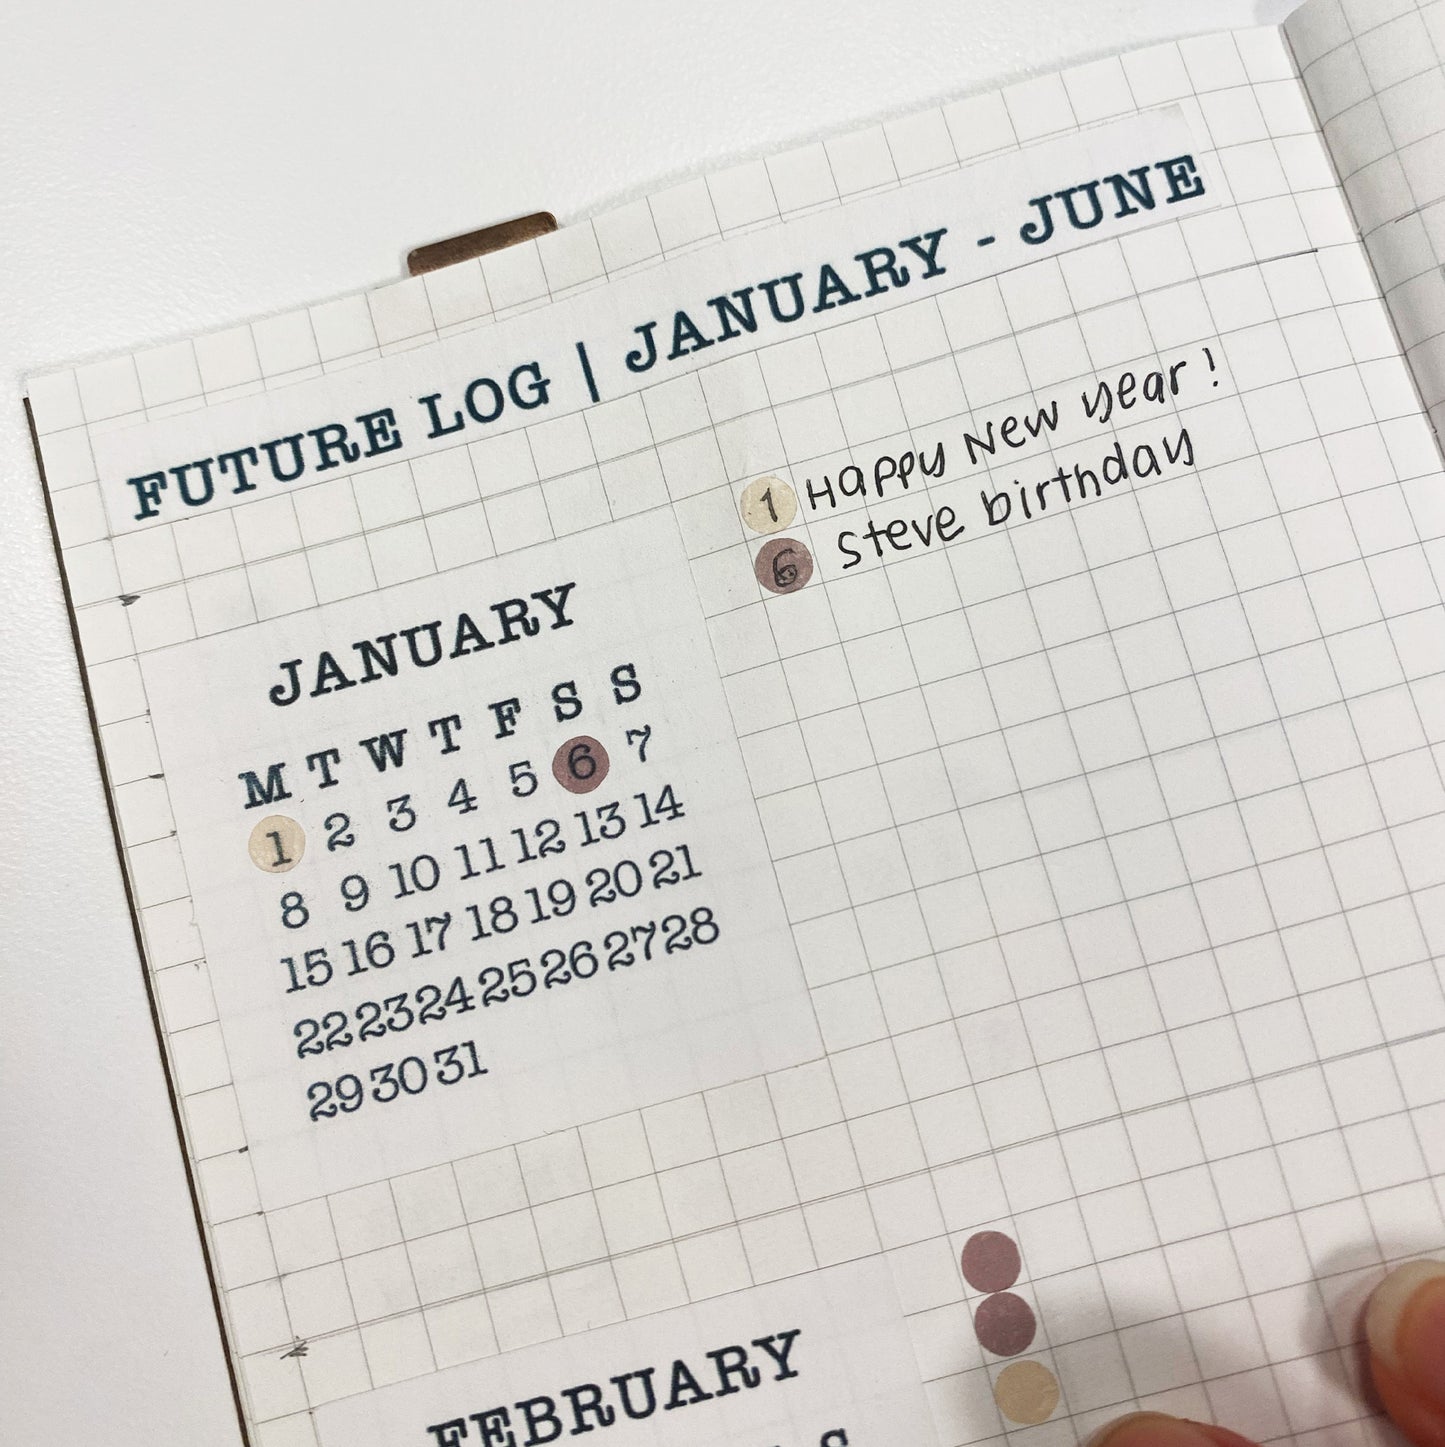 FUTURE LOG | JANUARY - JUNE
1 Happy New year!
6 Steve birthday
JANUARY
M T W T F S S
1 2 3 4 5 6 7
8 9 10 11 12 13 14
15 16 17 18 19 20 21
22 23 24 25 26 27 28
29 30 31
FEBRUARY
S